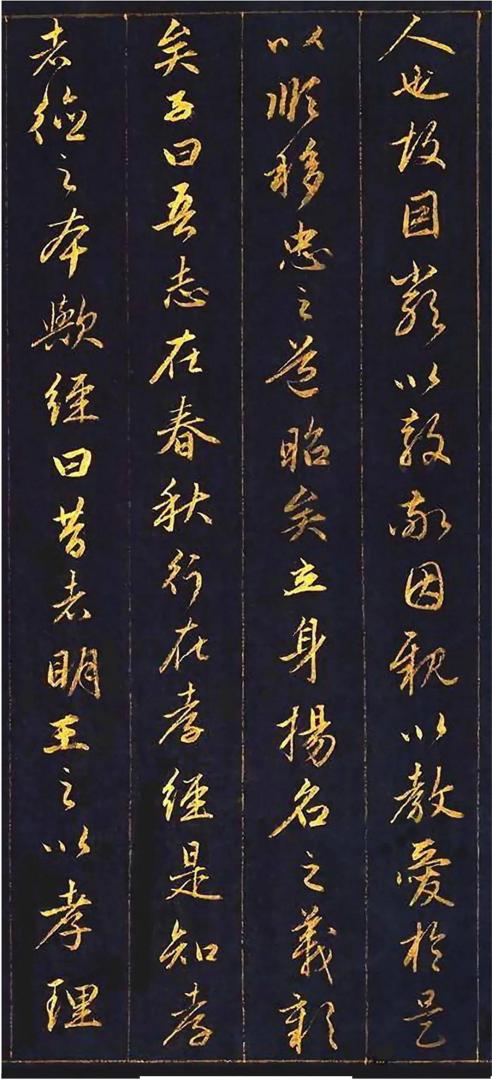 人也故因嚴以教敬因親以教愛於是
以順移忠之道昭矣立身揚名之義彰
矣子曰吾志在春秋行在孝經是知孝
者德之本歟經曰昔者明王之以孝理